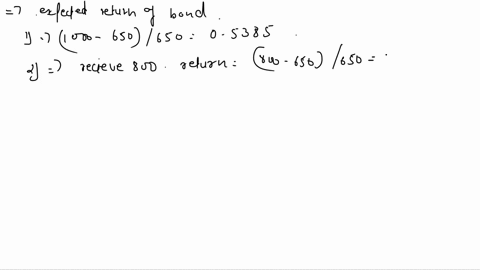 => expected return of bond.
1) => (1000 - 650) / 650 = 0.5385
2) => recieve 800. return = (800 - 650) / 650 =